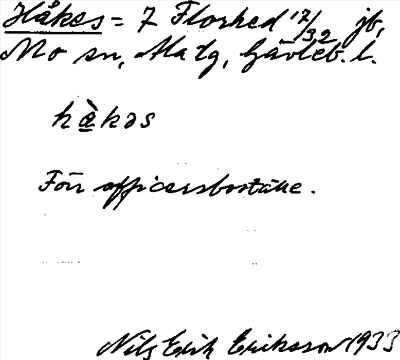 Håkes = 7 Florhed 17/32 jb,
Mo sn, Ala tg, Gävleb. l.
hà̱kəs
Förr officersboställe.
Nils Erik Eriksson 1933